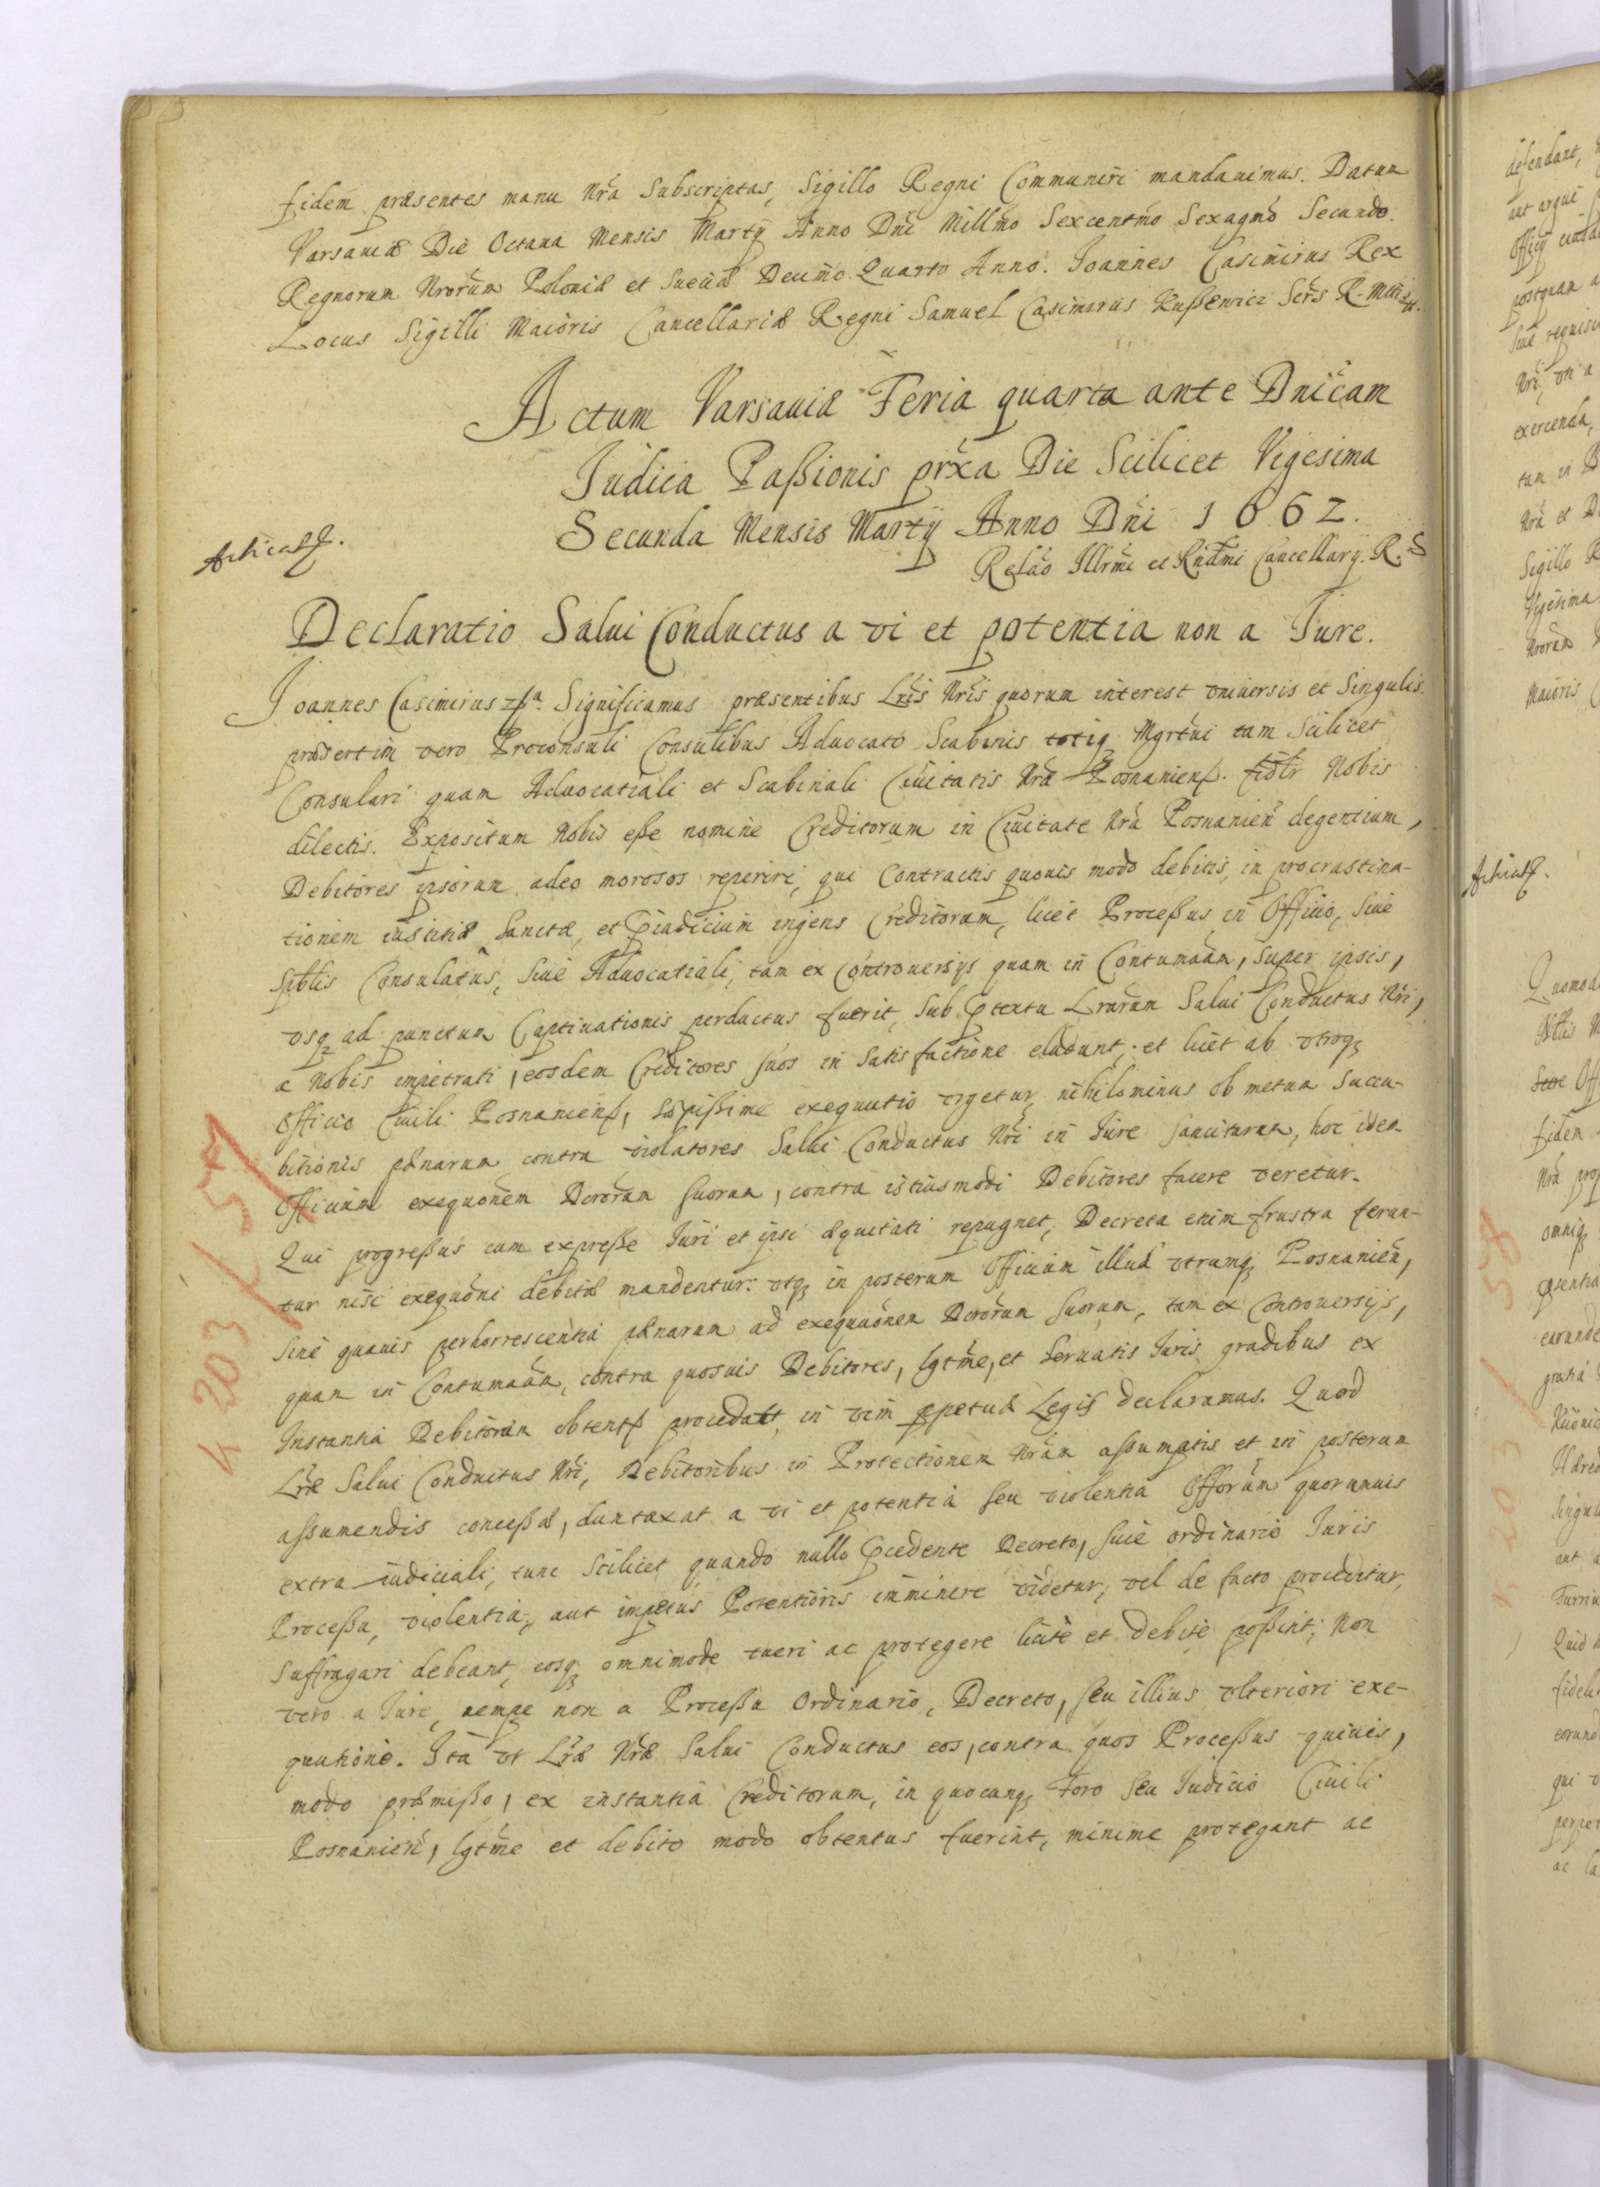 fidem præsentes manu Nra Subscriptas, Sigillo Regni Communiri mandauimus. Datum
Varsauiæ Die Octaua Mensis Martÿ Anno Dni Millmo Sexcentmo Sexagmo Secundo.
Regnorum Nrorum Poloniæ et Sueciæ Decimo Quarto Anno. Joannes Casimirus Rex
Locus Sigilli Maioris Cancellariæ Regni Samuel Casimirus Kußewicz Sers R. Mttis
Actum Varsauiæ Feria quarta ante Dnicam
Judica Paßionis prxa Die Scilicet Vigesima
Secunda Mensis Martÿ Anno Dni 1662.
Relao Illrmi et Rndmi Cancellarÿ. R.
Declaratio Salui Conductus a vi et potentia non a Jure.
Joannes Casimirus Significamus præsentibus Lris Nris quorum interest vniuersis et Singulis
præsertim vero Proconsuli Consulibus Aduocato Scabinis totiq Mgrtui tam Scilicet
Consulari quam Aduocatiali et Scabinali Ciuitatis Nræ Posnanien. fidlr Nobis
dilectis. Expositum Nobis eße nomine Creditorum in Ciuitate Nra Posnanien degentium,
Debitores ipsorum adeo morosos reperiri, qui Contractis quouis modo debitis, in procrastina-
tionem iustitiæ Sanctæ, et Piudicium ingens Creditorum, licet Proceßus in Officio, Siue
Spblis Consulatus, Siue Aduocatiali, tam ex Controuersÿs quam in Contumaām, Super ipsis,
vsq ad punctum Captiuationis perductus fuerit, Sub Ptextu Lrarum Salui Conductus Nri,
a Nobis impetrati, eosdem Creditores suos in Satisfactione eludunt. et licet ab vtroq
Officio Ciuili Posnanien, Sæpißime exequutio vrgetur, nihilominus ob metum Succu-
bitionis pænarum contra violatores Salui Conductus Nri in Jure sancitarum, hoc idem
Officium exequonem Dcrorum Suorum, contra istiusmodi Debitores facere veretur.
Qui progreßus cum expreße Juri et ipsi æquitati repugnet, Decreta enim frustra ferun-
tur nisi exequoni debitæ mandentur: vtq in posterum Officium illud vtrumq Posnanien,
Sine quauis perhorrescentia pænarum ad exequuonem Dcrorum Suorum, tam ex Controuersÿs,
quam in Contumaām, contra quosuis Debitores, lgtme, et Seruatis Juris gradibus ex
Instantia Debitorum obtent procedat, in vim ppetuæ Legis declaramus. Quod
Lræ Salui Conductus Nri, Debitoribus in Protectionem Nram aßumptis et in posterum
aßumendis conceßæ, duntaxat a vi et potentia seu violentia Offorum quorumuis
extra iudiciali, tunc Scilicet quando nullo Pcedente Decreto, Siue ordinario Juris
Proceßu, violentia, aut impetus Potentioris imminere videtur, vel de facto proceditur,
Suffragari debeant, eosq omnimode tueri ac protegere licite et debite poßint; Non
vero a Jure, nempe non a Proceßu Ordinario, Decreto, seu illius vlteriori exe-
quutione. Ita vt Lræ Nræ Salui Conductus eos, contra quos Proceßus quiuis,
modo præmißo, ex instantia Creditorum, in quocunq Foro Seu Judicio Ciuili
Posnanien, lgtme et debito modo obtentus fuerint, minime protegant ac
4 203 / 57